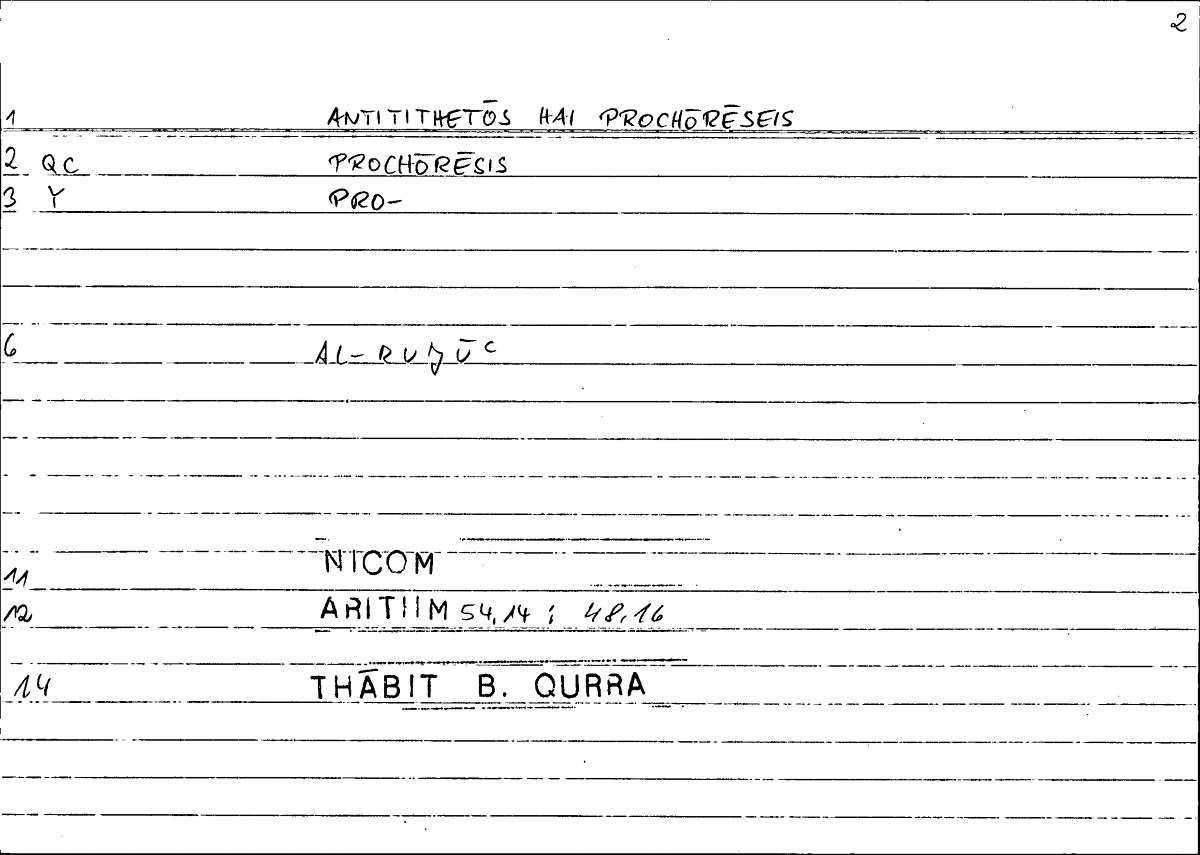 2
1 ANTITITHETŌS HAI PROCHŌRĒSEIS
2 QC PROCHŌRĒSIS
3 Y PRO-
6 AL-RUJŪᶜ
11 NICOM
12 ARITHM 54,14 ; 48,16
14 THĀBIT B. QURRA